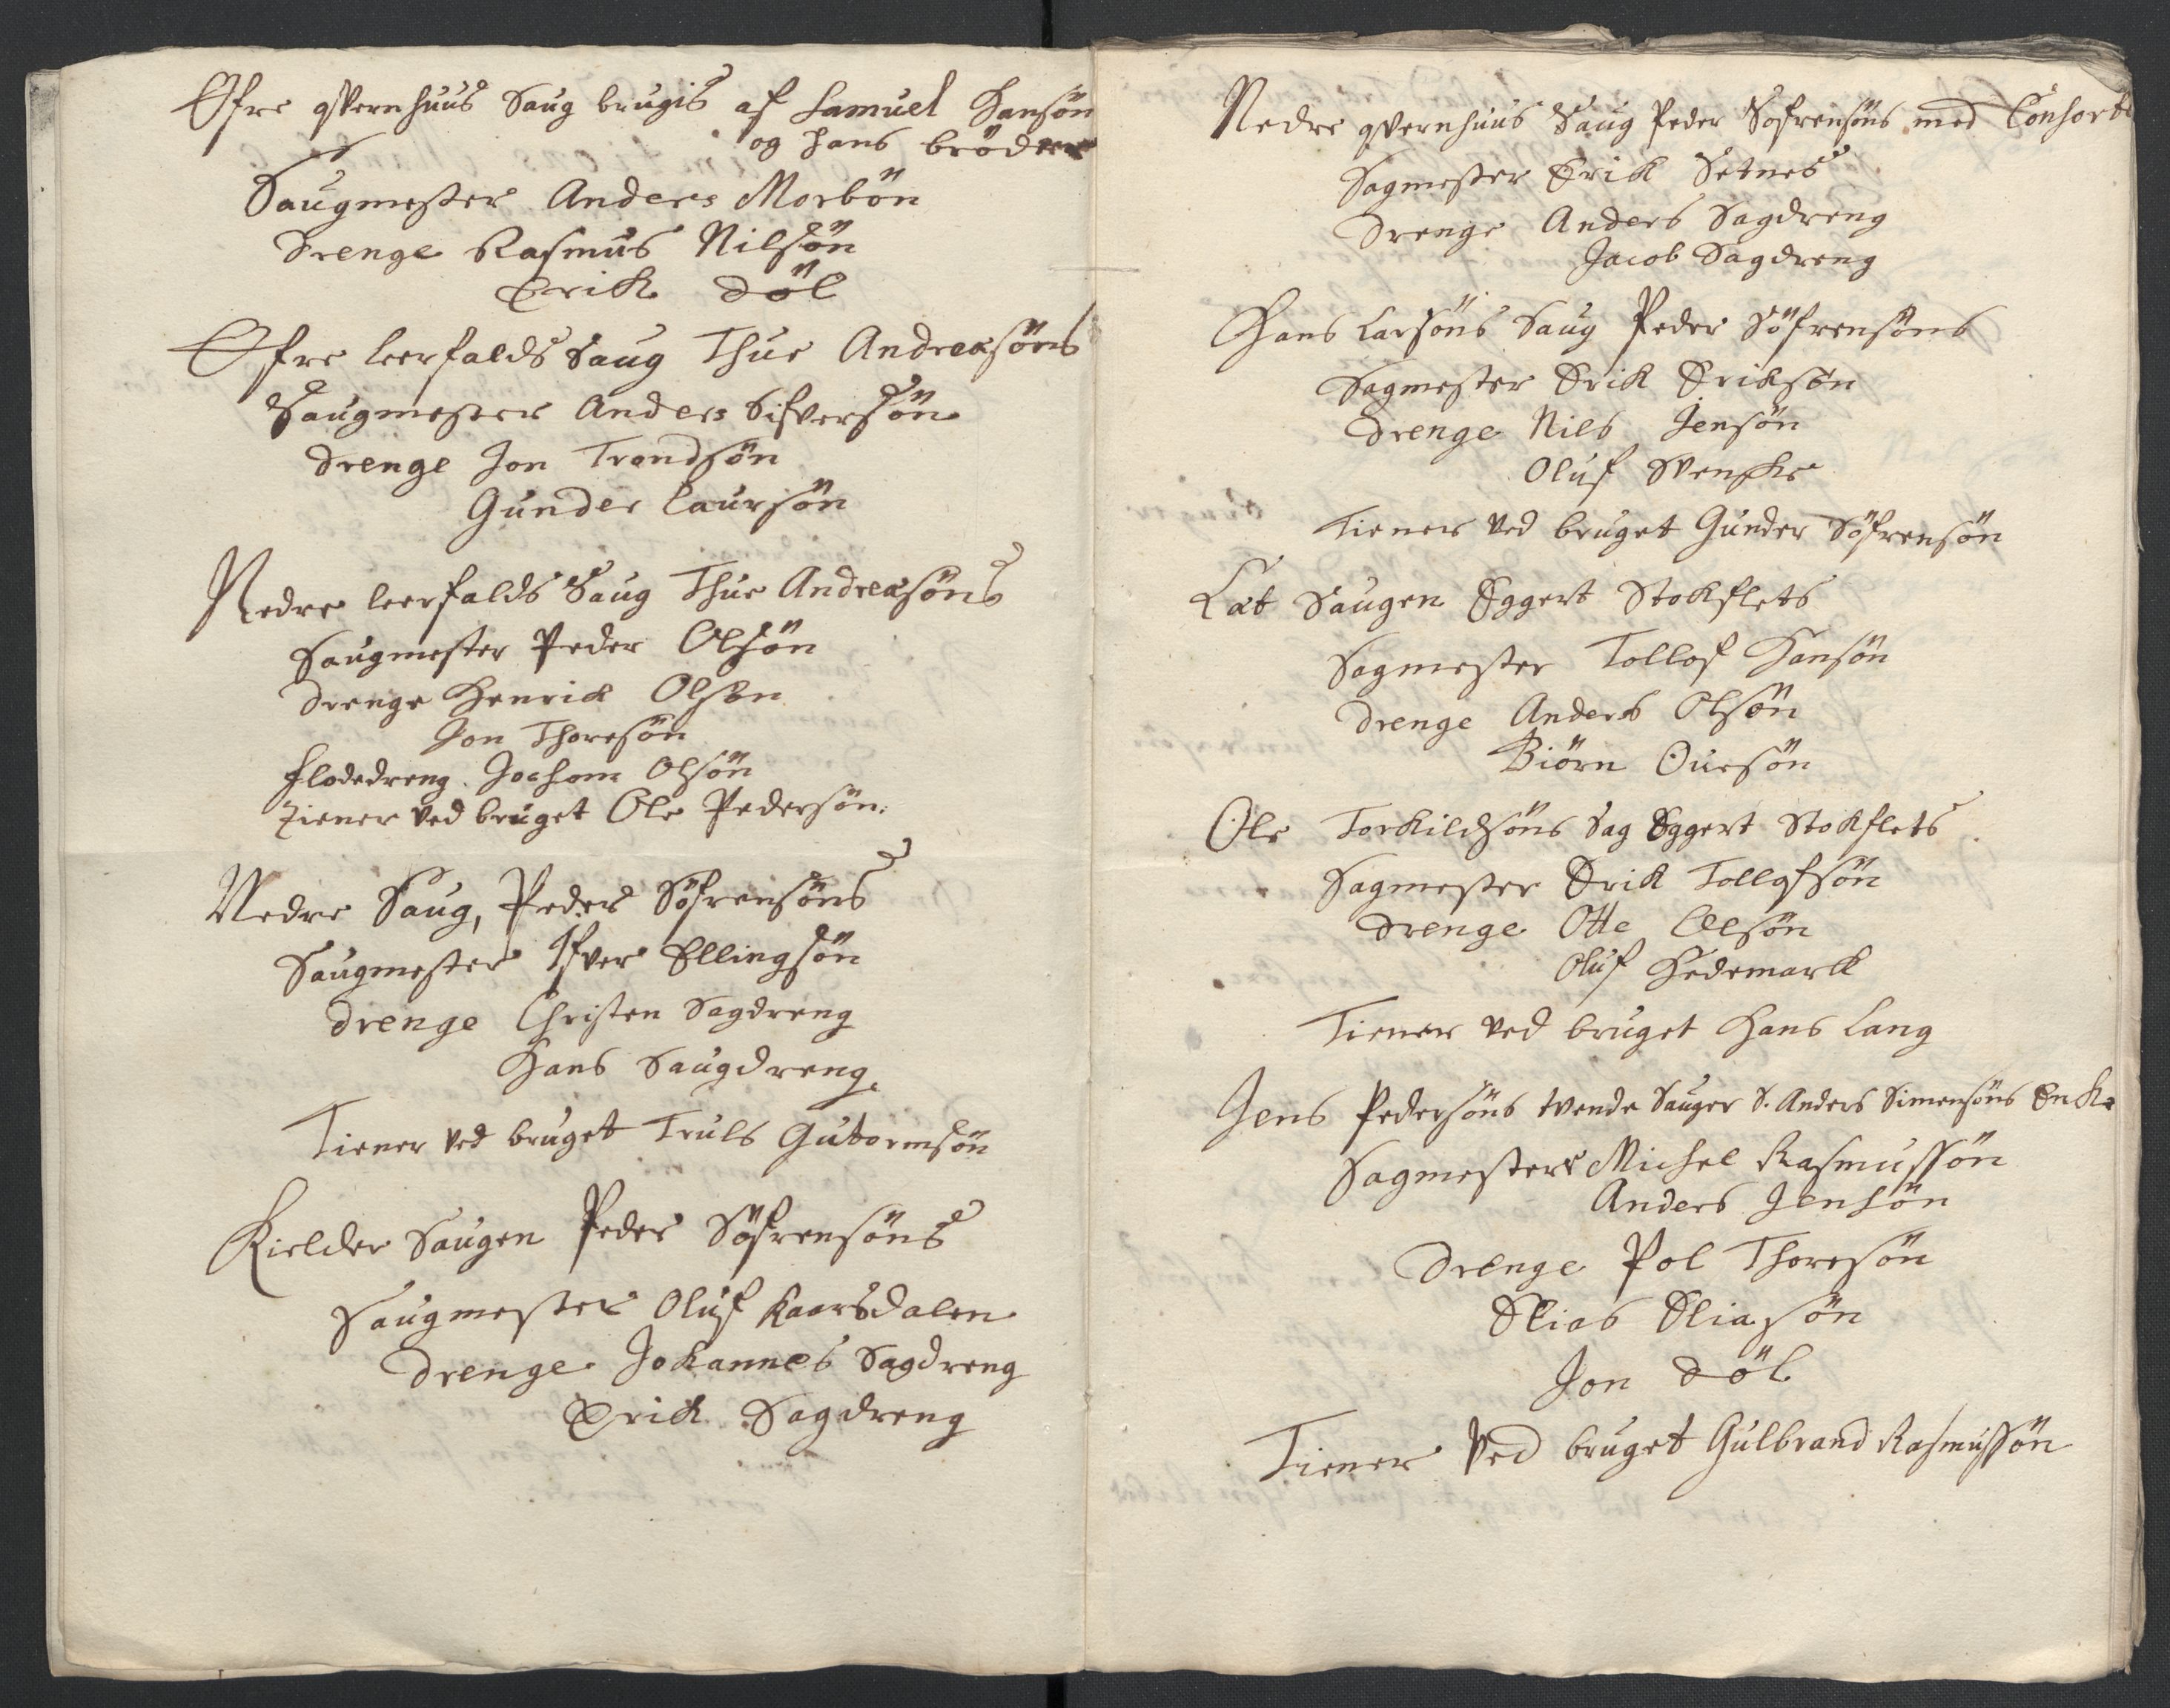 Øfre qvernhuus Saug brugis af Samuel Hansøn
og hans brödre
Saugmester Anders Morbön
Drenge Rasmus Nilsön
Erik Döl
Øfre leerfalds Saug Thue Andreasöns
Saugmester Anders Sifversön
Drenge Jon Trondsön
Gunder Laursön
Nedre leerfalds Saug Thue Andreasöns
Saugmester Peder Olsön
Drenge Henrick Olsön
Jon Thoresön
flodedreng Jochom Olsön
Tiener ved bruget Ole Pedersön.
Nedre Saug, Peder Söfrensöns
Saugmester Ifver Ellingsön
Drenge Christen Sagdreng
Hans Saugdreng.
Tiener ved bruget Truls Gutormsön
Kielder Saugen Peder Söfrensöns
Saugmester Oluf Kaarsdalen
Drenge Johannes Sagdreng
Erick Sagdreng
Nedre qvernhuus Saug Peder Söfrensöns med Consort
Sagmester Erik Setnes
Drenge Anders Sagdreng
Jacob Sagdreng
Hans Larsöns Saug Peder Söfrensöns
Sagmester Erik Eriksön
Drenge Nils Jensön
Oluf Svenske
Tiener ved bruget Gunder Söfrensön
Lat Saugen Eggert Stokflets
Sagmester Tollof Hansön
Drenge Anders Olsön
Biörn Ouesön
Ole Torkildsöns Sag Eggert Stokflets
Sagmester Erik Tollofsön
Drenge Otte Olsön
Oluf Hedemarck
Tiener ved bruget Hans Lang
Jens Pedersöns tvende Sauger S. Anders Simensöns Enke
Sagmester Michel Rasmussön
Anders Jensön
Drenge Pol Thoresön
Elias Eliasön
Jon Döl
Tiener ved bruget Gulbrand Rasmussön